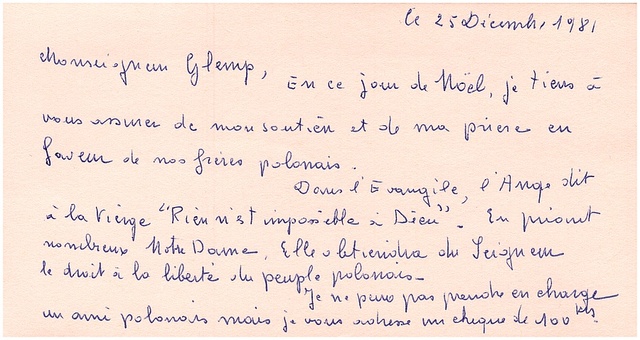 le 25 Décembre 1981
Monseigneur Glemp,
En ce jour de Noël, je tiens à
vous assurer de mon soutien et de ma prière en
faveur de nos frères polonais.
Dans l'Evangile, l'Ange dit
à la Vierge "Rien n'est impossible à Dieu". En priant
nombreux Notre Dame, Elle obtiendra du Seigneur
le droit à la liberté du peuple polonais.
Je ne peux pas prendre en charge
un ami polonais mais je vous adresse un chèque de 100